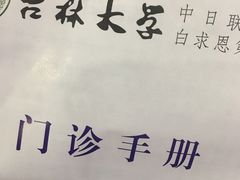 吉林大学
中日联
白求恩第
门诊手册